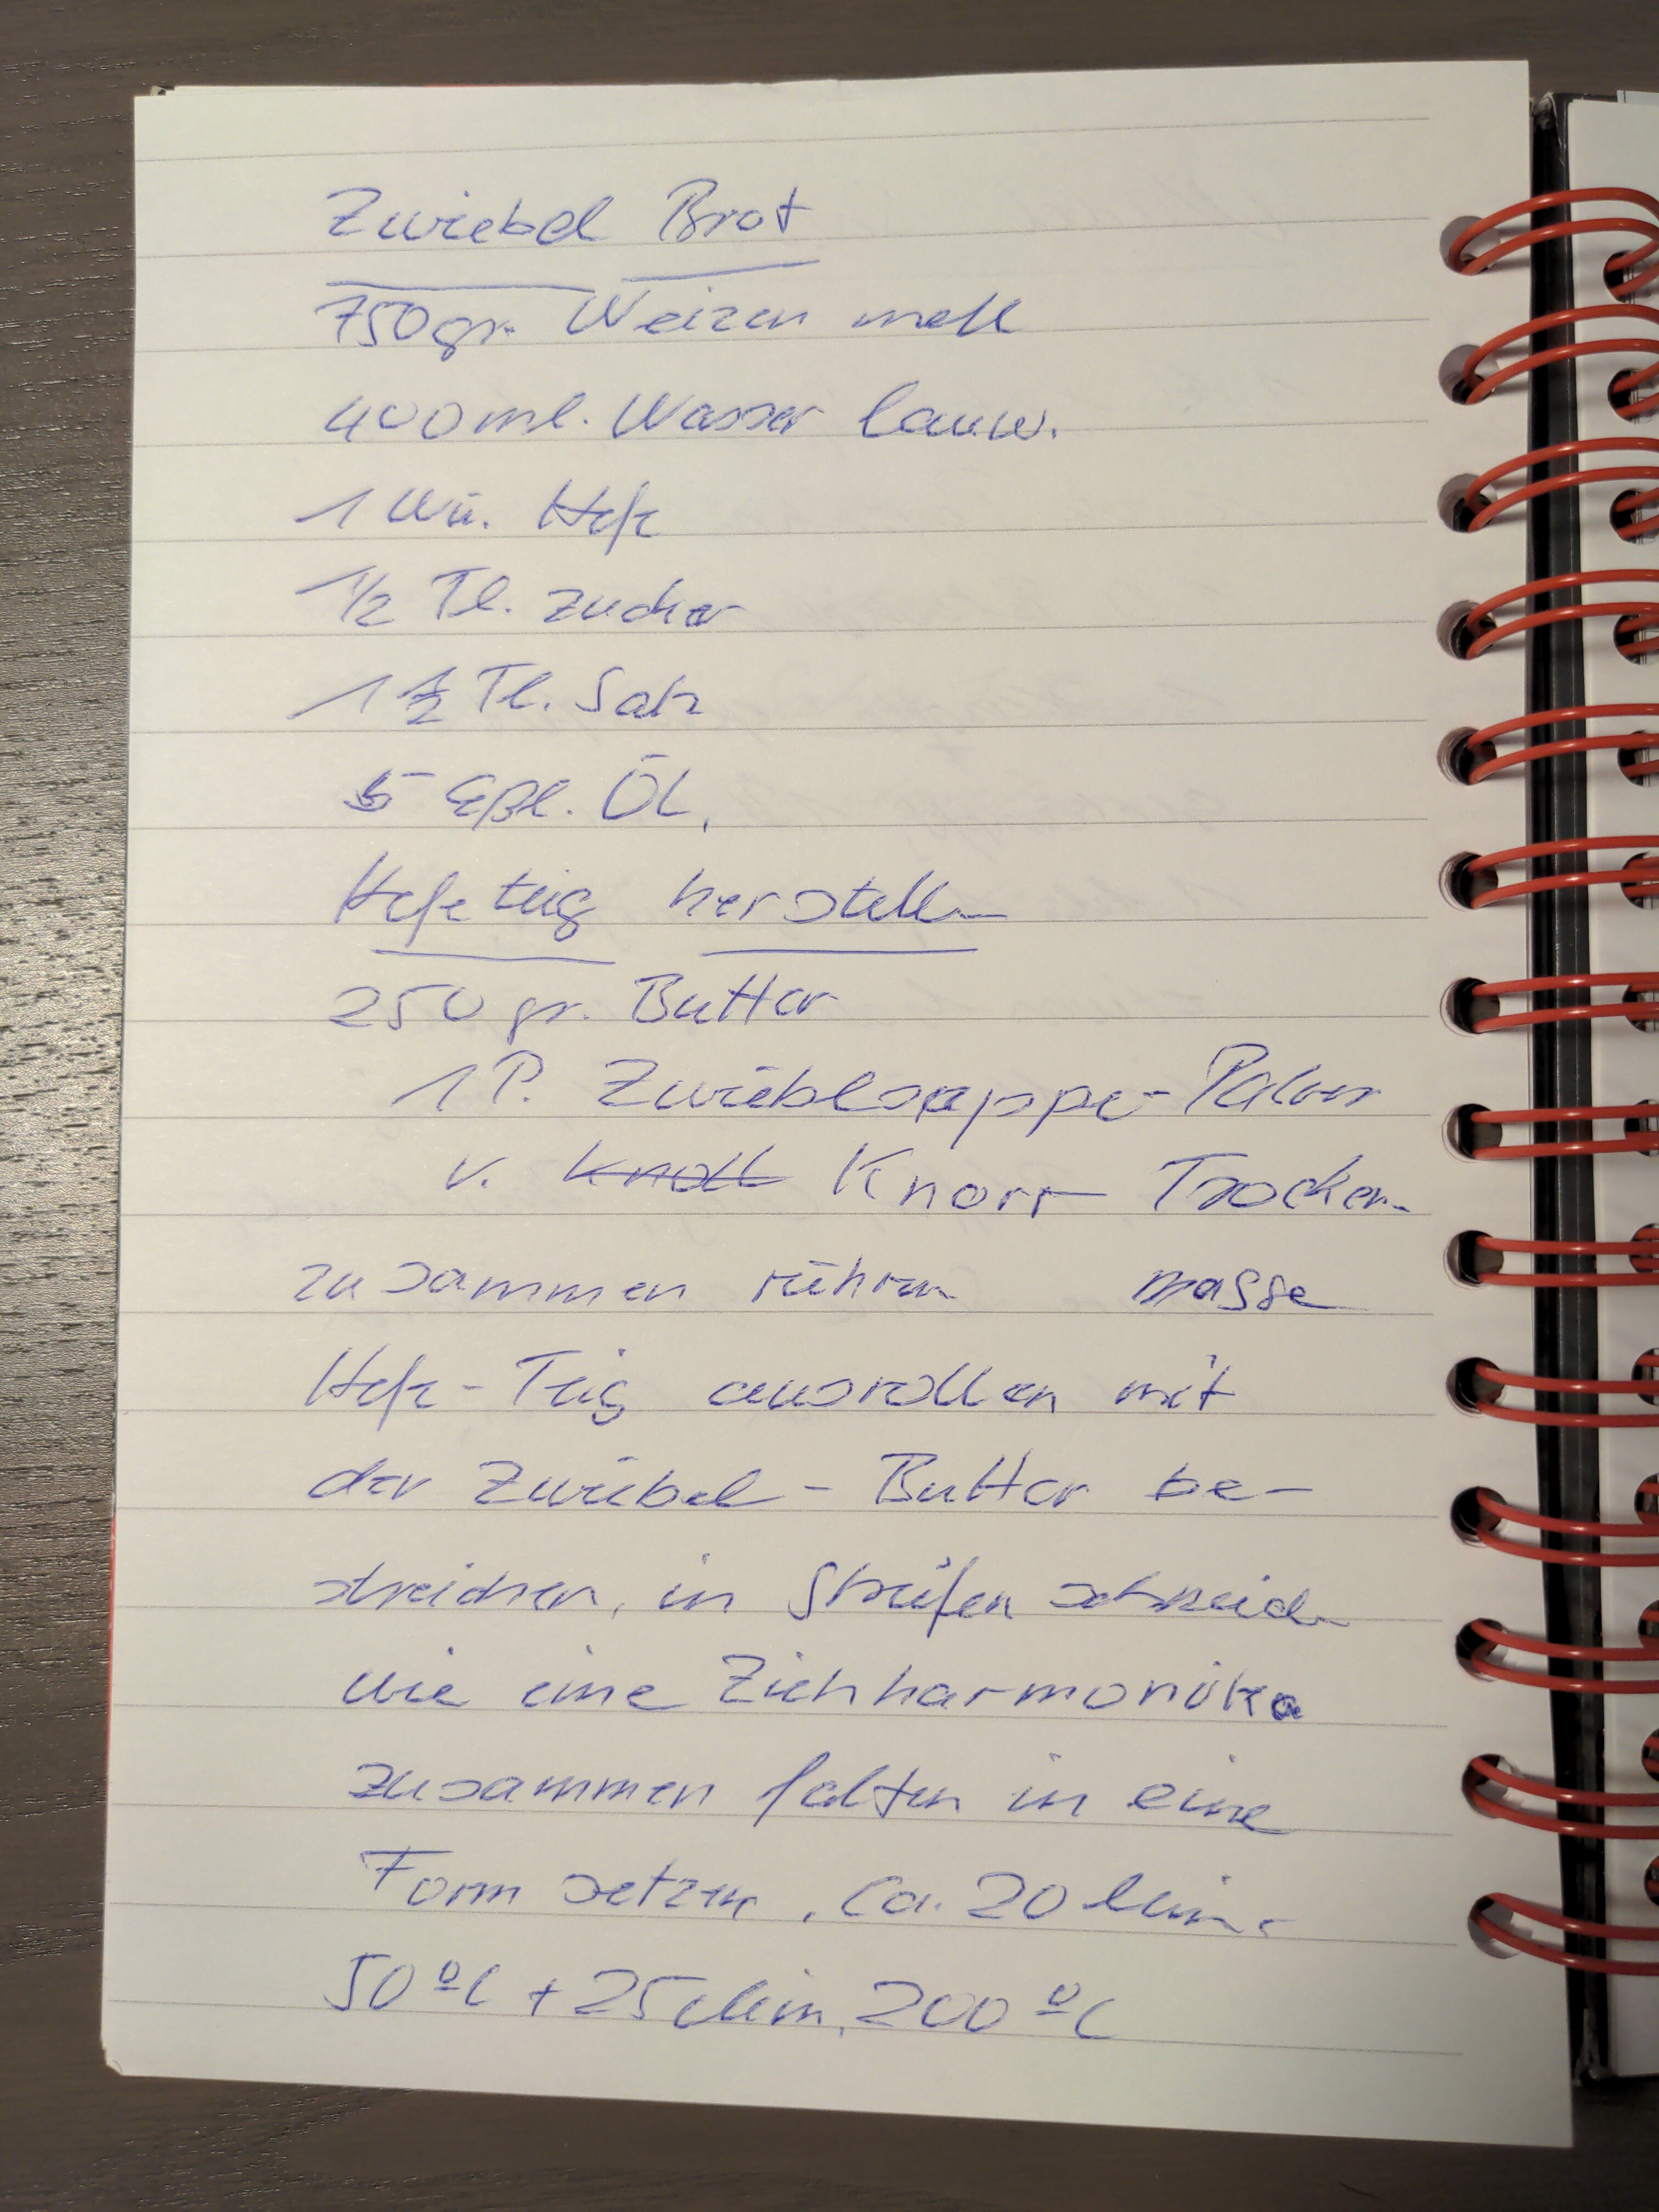 Zwiebel Brot
750gr. Weizen mehl
400ml. Wasser lauw.
1 Wü. Hefe
1/2 Tl. Zucker
1 1/2 Tl. Salz
5 Eßl. ÖL,
Hefe teig herstellen
250 gr. Butter
1 P. Zwieblsuppe-Pulver
v. Knoll Knorr Trocken-
zusammen rühren masse
Hefe-Teig ausrollen mit
der Zwiebel-Butter be-
streichen, in Streifen schneiden
wie eine Ziehharmonika
zusammen falten in eine
Form setzen, ca. 20 Min.
50 °C + 25 Min. 200 °C